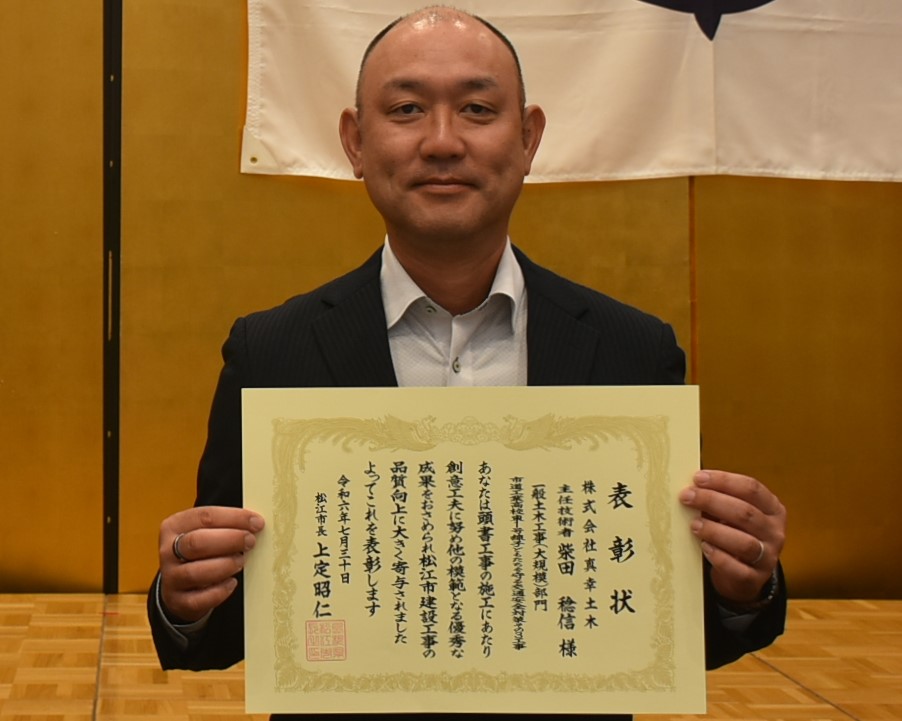 表彰状
株式会社真幸土木
主任技術者 柴田 稔信 様
一般土木工事(大規模)部門
あなたは頭書工事の施工にあたり
創意工夫に努め他の模範となる優秀な
成果をおさめられ松江市建設工事の
品質向上に大きく寄与されました
よってこれを表彰します
令和六年七月三十日
松江市長 上定昭仁